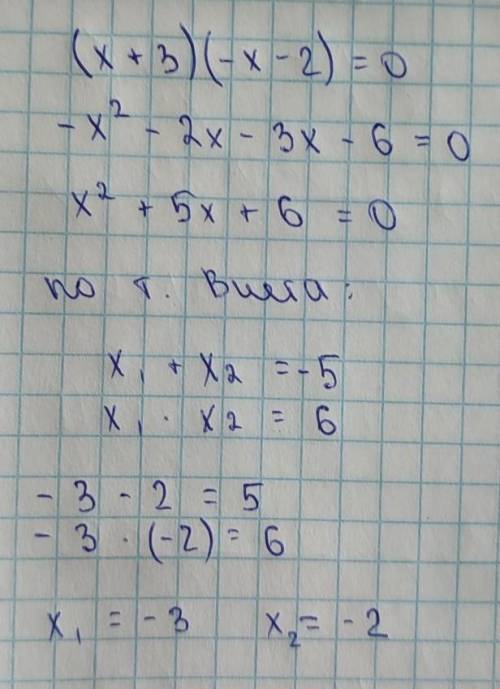 (x + 3)(-x - 2) = 0
-x² - 2x - 3x - 6 = 0
x² + 5x + 6 = 0
по т. Виета:
x₁ + x₂ = -5
x₁ · x₂ = 6
-3 - 2 = 5
-3 · (-2) = 6
x₁ = -3 x₂ = -2